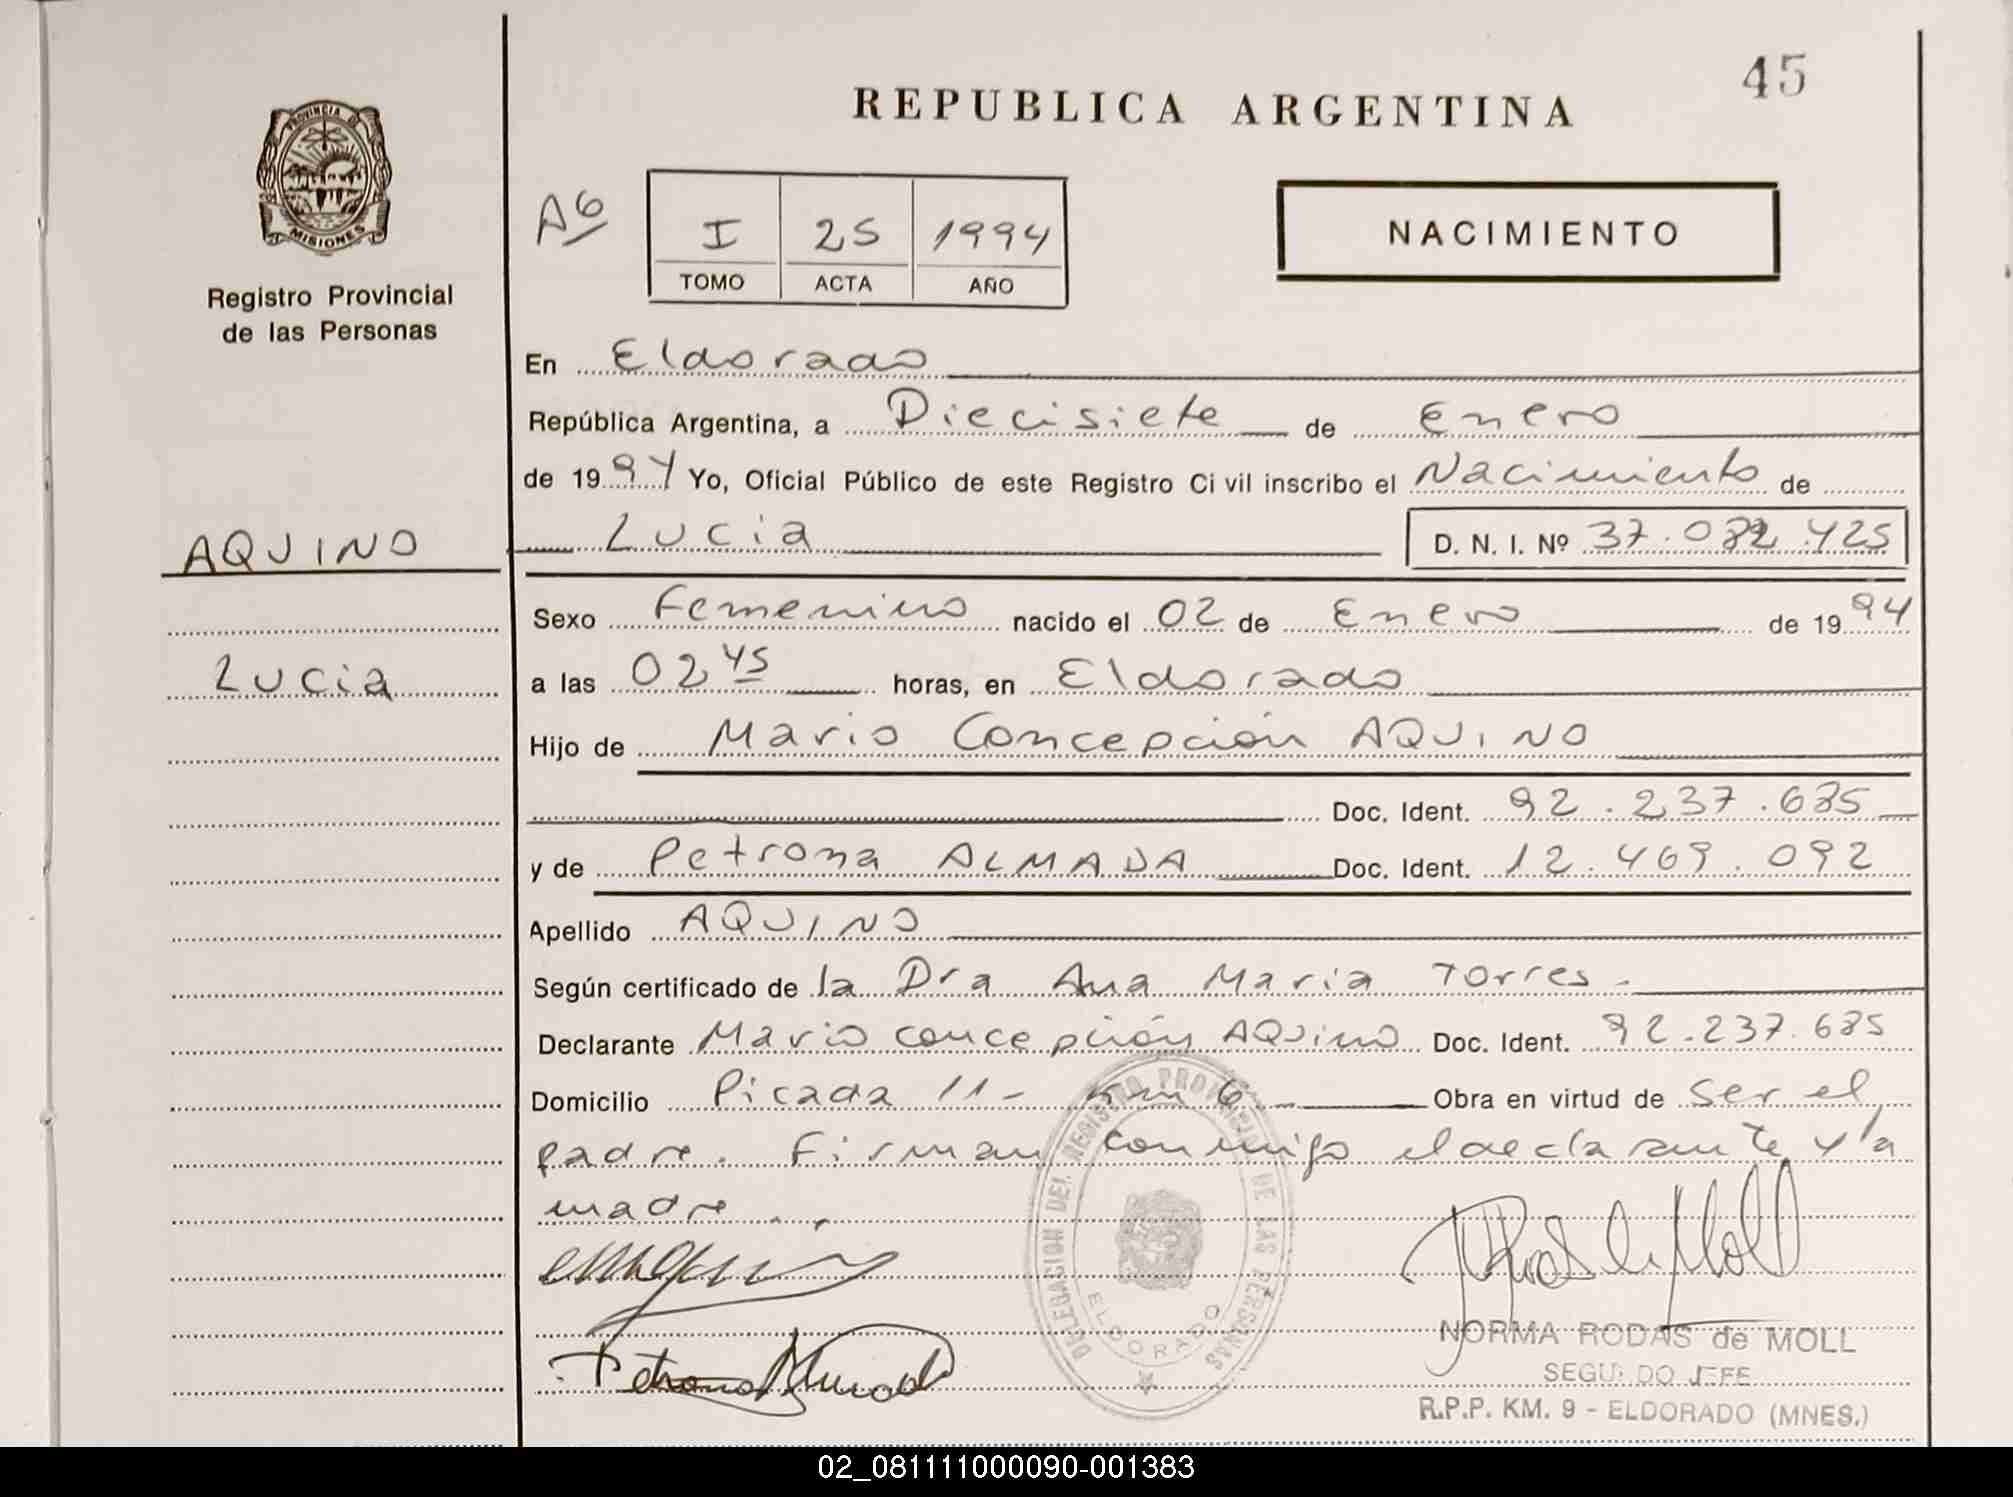 45
REPUBLICA ARGENTINA
PROVINCIA DE
MISIONES
Registro Provincial
de las Personas
A6
I 25 1994
TOMO ACTA AÑO
NACIMIENTO
En Eldorado
República Argentina, a Diecisiete de Enero
de 1994 Yo, Oficial Público de este Registro Civil inscribo el Nacimiento de
AQUINO
Lucia D. N. I. Nº 37.082.425
Sexo Femenino nacido el 02 de Enero de 1994
Lucia
a las 02 45 horas, en Eldorado
Hijo de Mario Concepción AQUINO
Doc. Ident. 92.237.685
y de Petrona ALMADA Doc. Ident. 12.469.092
Apellido AQUINO
Según certificado de la Dra Ana Maria Torres.
Declarante Mario Concepción AQUINO Doc. Ident. 92.237.685
Domicilio Picada 11- Km 6 Obra en virtud de ser el
padre. Firman conmigo el declarante y la
madre..
DELEGACION DEL REGISTRO PROVINCIAL DE LAS PERSONAS
ELDORADO
Petrona Almada
NORMA RODAS de MOLL
SEGUNDO JEFE
R.P.P. KM. 9 - ELDORADO (MNES.)
02_081111000090-001383